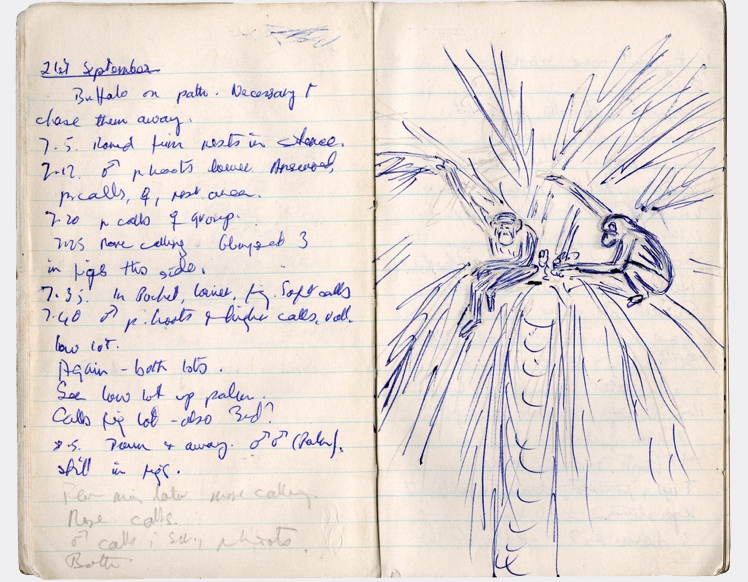 21st September
Buffalo on path. Necessary t
chase them away.
7.5. Round from nests in silence.
7.12. ♂ p. hoots lower. Answered,
p. calls, ♀, nest area.
7.20 p calls ♀ group.
7.25 more calling. Glimpsed 3
in figs this side.
7.35. In Pocket, lower, fig. Soft calls
7.40 ♂ p. hoots & higher calls.
low lot.
Again - both lots.
See low lot up palm.
Calls fig lot - also 3rd?
8.5. Down & away. ♂♂ (Palm).
still in figs.
Few min later more calling.
More calls.
♂ calls ; p. hoots
Both